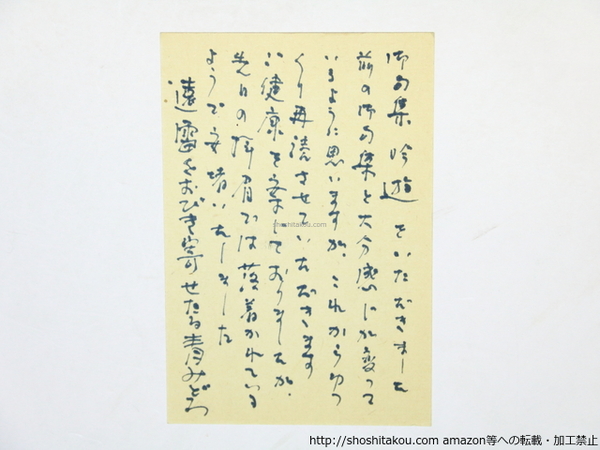 御句集 吟遊 をいただきました
前の御句集と大分感じが変って
いるように思いますが、これからゆっ
くり再読させていただきます
ご健康を案じておりましたが、
先日の拝眉では落着かれている
ようで安堵いたしました
遠雷をおびき寄せたる青みどろ
shoshitakou.com
http://shoshitakou.com amazon等への転載・加工禁止